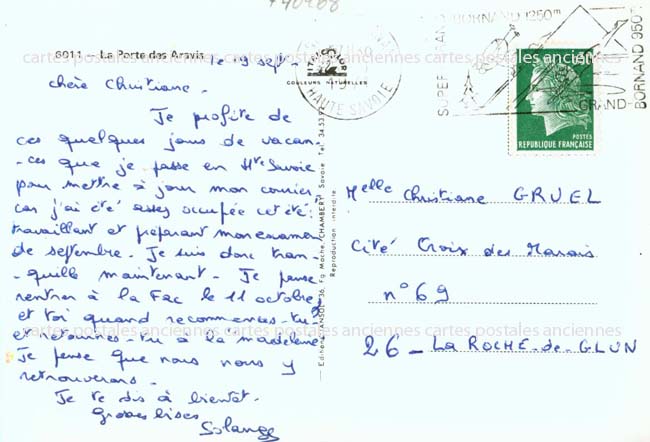 8011 - La Porte des Aravis
le 19 sept -
chère Christiane -
Je profite de
ces quelques jours de vacan-
-ces que je passe en Hte Savoie
pour mettre à jour mon courrier,
car j'ai été assez occupée cet été:
travaillant et préparant mon examen
de septembre. Je suis donc tran-
-quille maintenant - Je pense
rentrer à la Fac le 11 octobre
et toi quand recommences-tu?
et retournes-tu à la madeleine
Je pense que nous nous y
retrouverons -
Je te dis à bientôt -
Grosses bises
Solange
COULEURS NATURELLES
Reproduction interdite
HAUTE SAVOIE
SUPER
BORNAND 1250m
GRAND-
BORNAND 950m
POSTES
REPUBLIQUE FRANÇAISE
Melle Christiane GRUEL
Cité Croix des Marais
n° 69
26 - LA ROCHE-de-GLUN
cartes postales anciennes cartes postales anciennes cartes postales anciennes
cartes postales anciennes cartes postales anciennes cartes postales anciennes